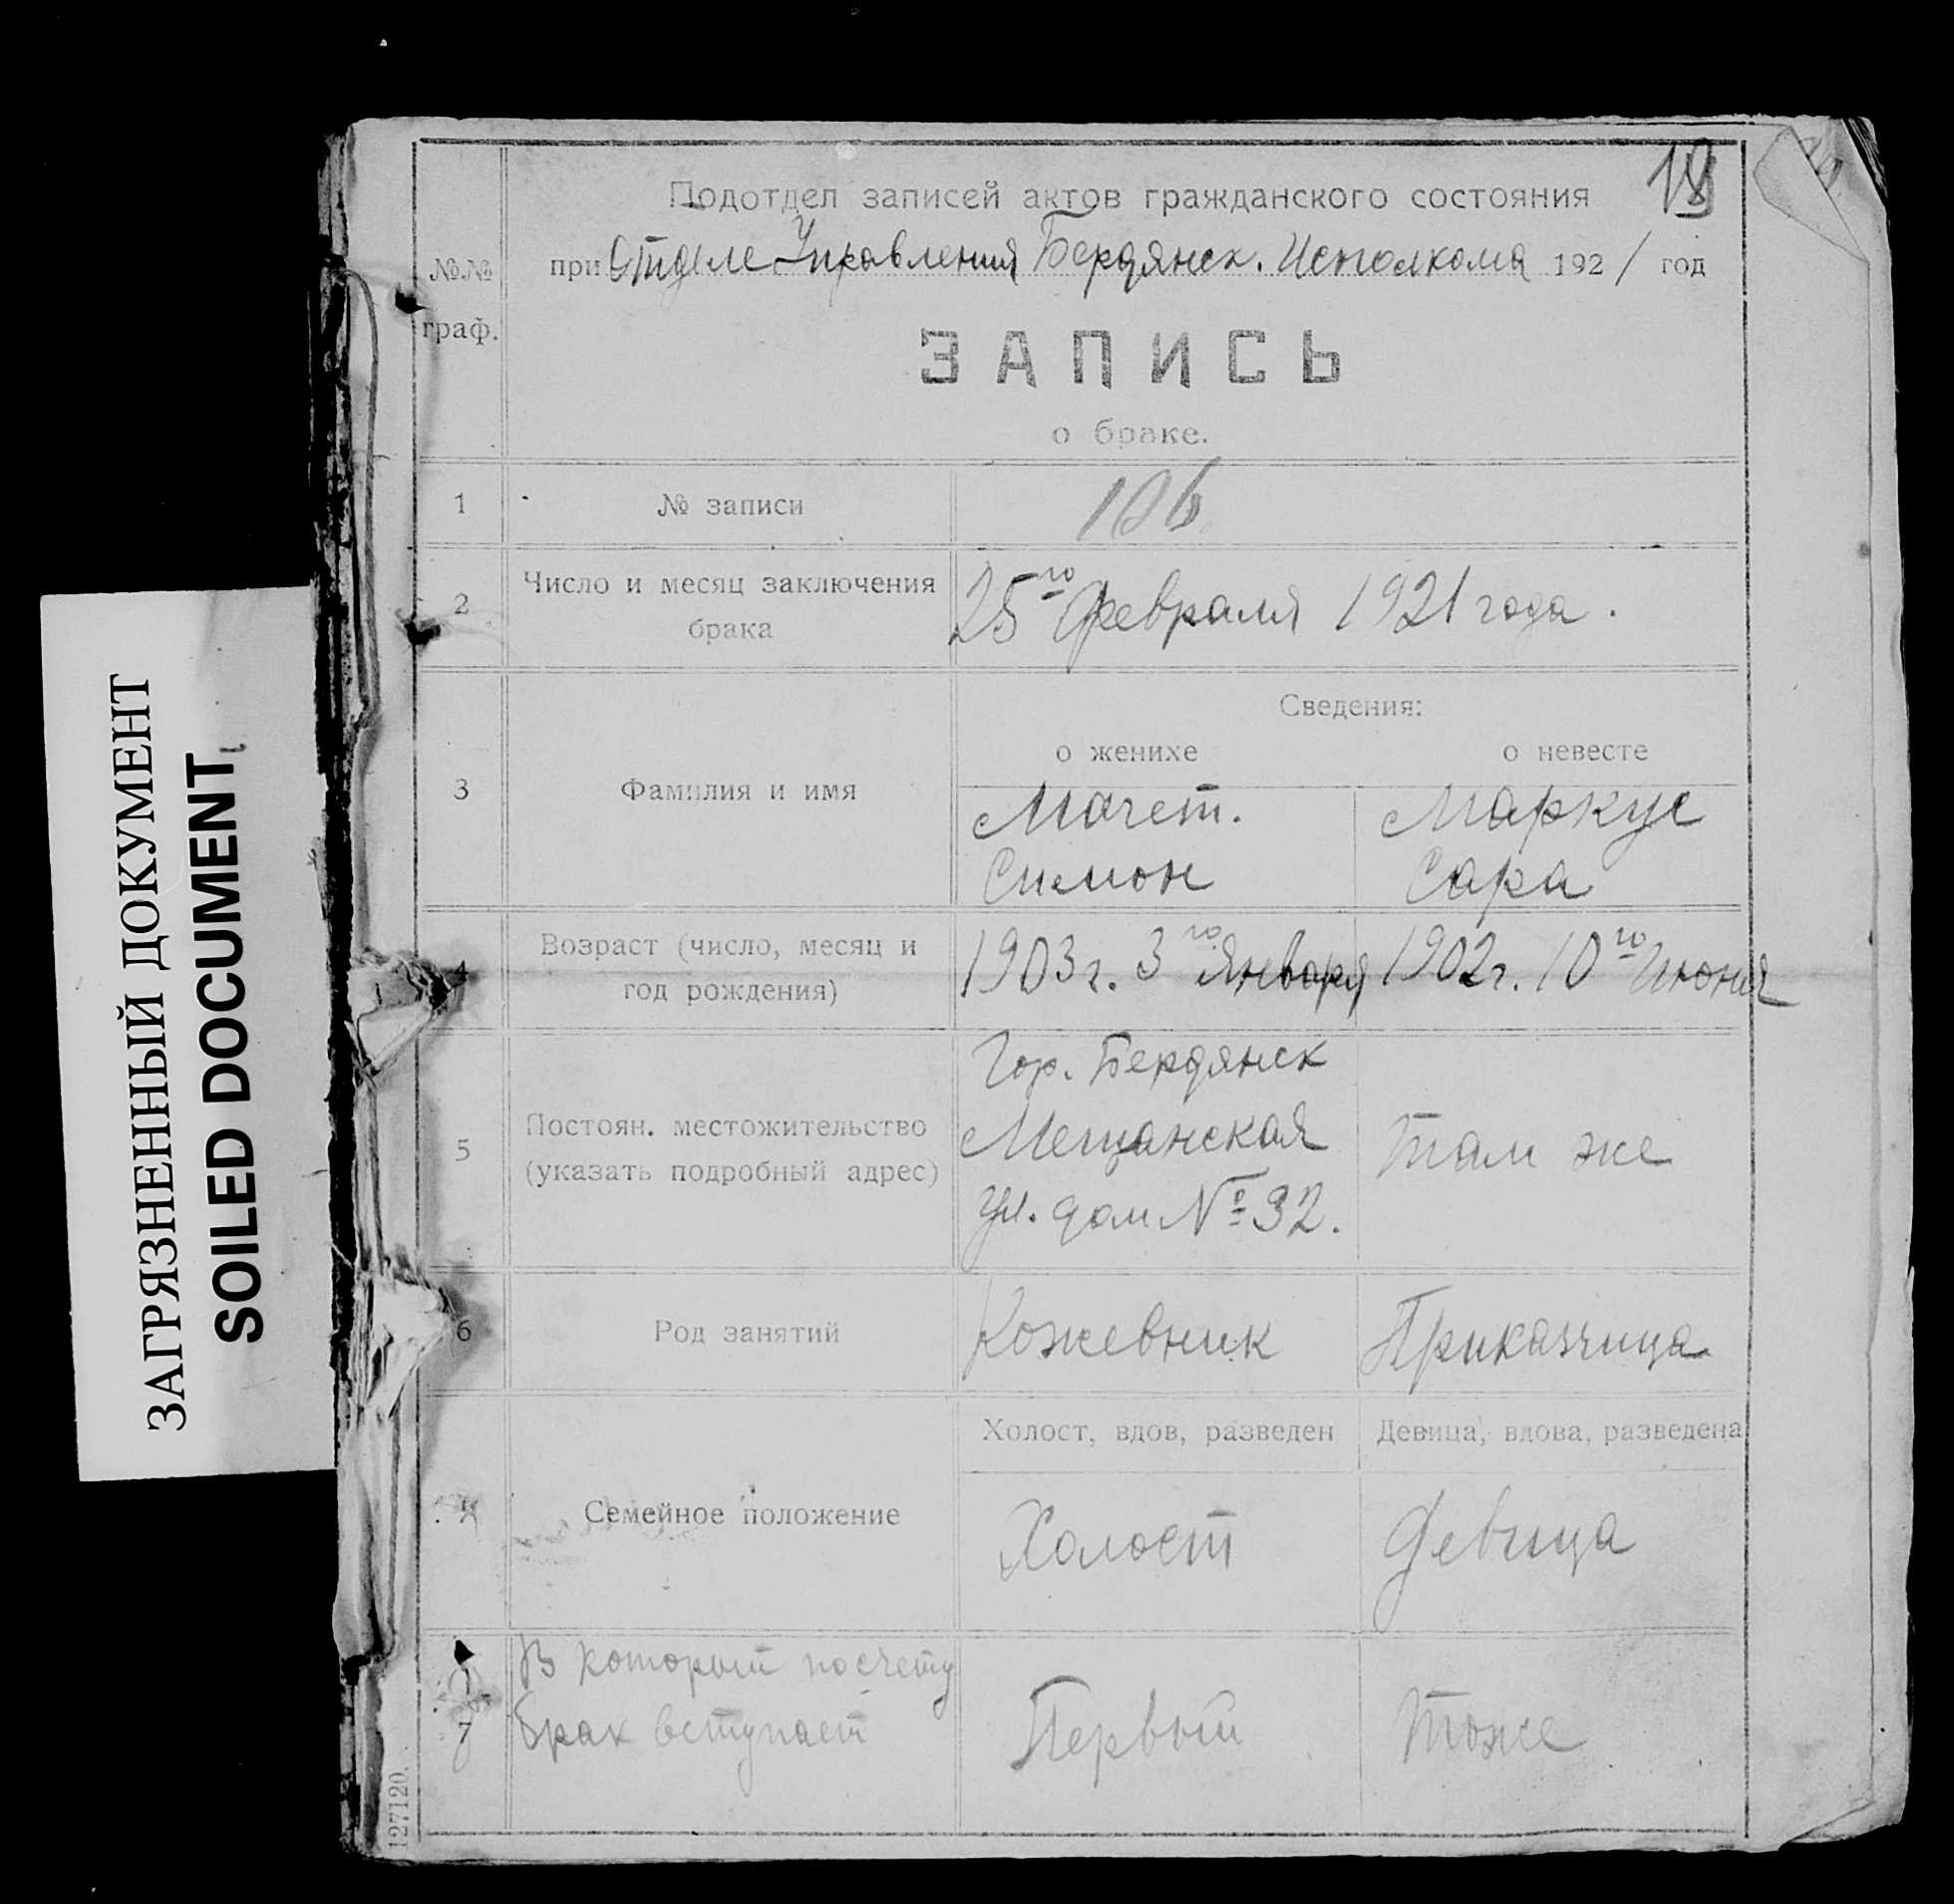 ЗАГРЯЗНЕННЫЙ ДОКУМЕНТ
SOILED DOCUMENT
Подотдел записей актов гражданского состояния
при Отделе Управления Бердянск. Исполкома 1921 год
№№ граф.
ЗАПИСЬ
о браке.
1 № записи 106
2 Число и месяц заключения брака 25го Февраля 1921 года.
Сведения:
о женихе о невесте
3 Фамилия и имя
Мачет. Маркус
Симон Сара
4 Возраст (число, месяц и год рождения) 1903 г. 3го Января 1902 г. 10го Июня
5 Постоян. местожительство (указать подробный адрес)
Гор. Бердянск
Мещанская
ул. дом № 32.
Там же
6 Род занятий Кожевник Приказчица
Холост, вдов, разведен Девица, вдова, разведена
Семейное положение Холост Девица
7 В который по счету
брак вступает
Первый Тоже
127120.